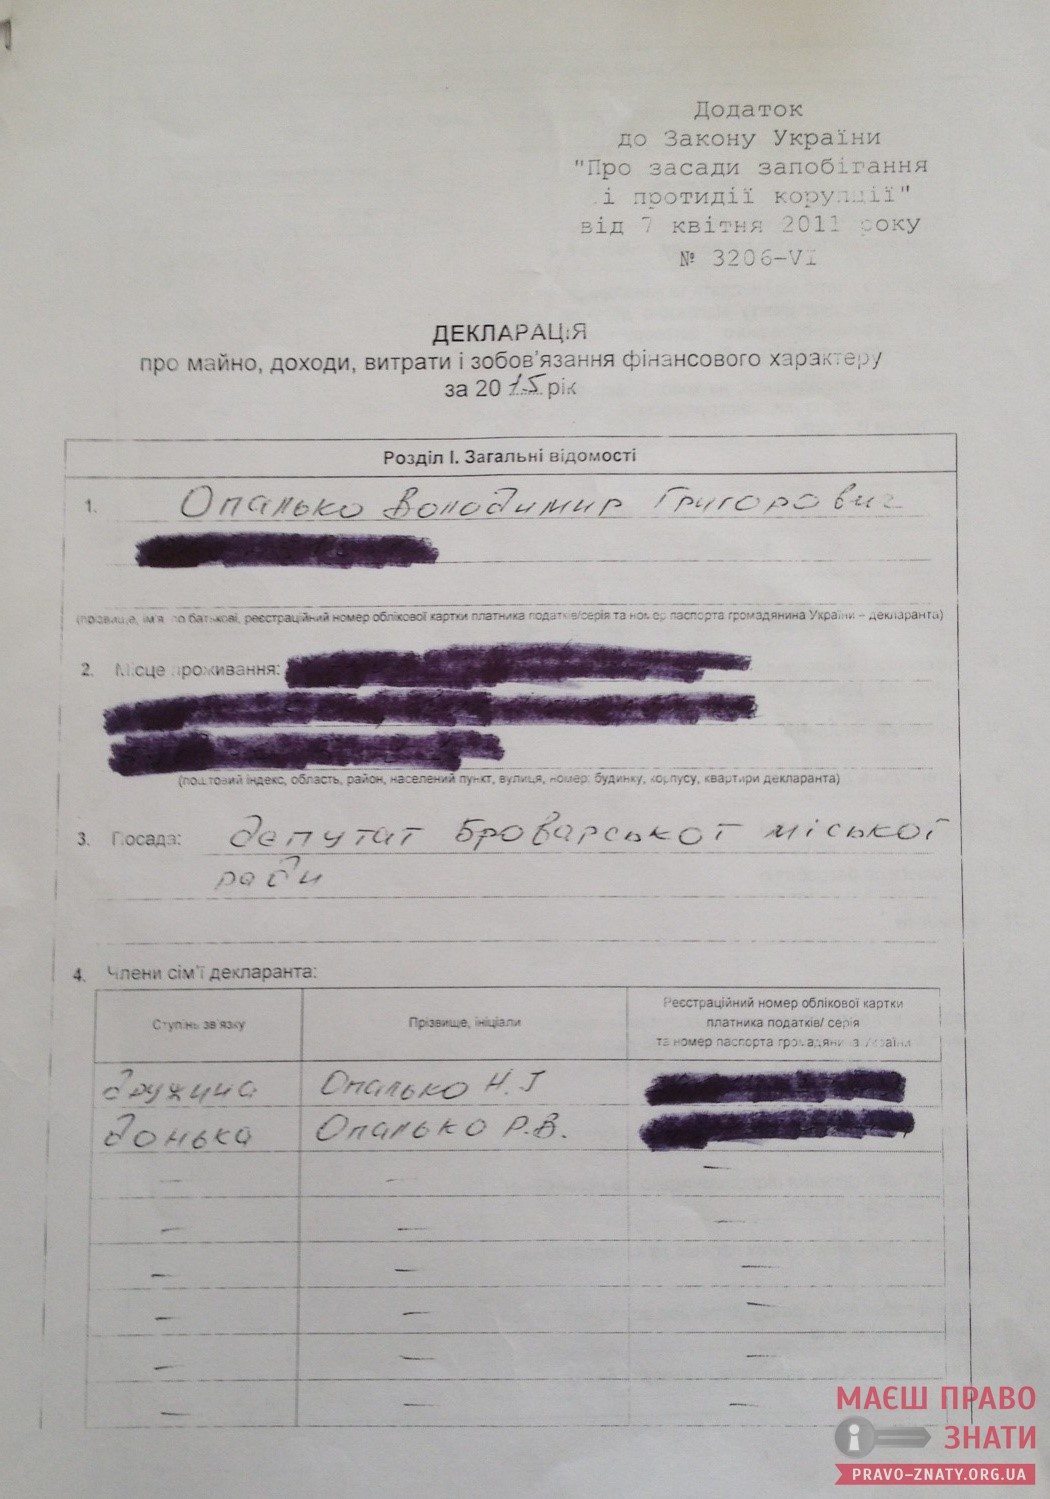 Додаток
до Закону України
"Про засади запобігання
і протидії корупції"
від 7 квітня 2011 року
№ 3206-VI
ДЕКЛАРАЦІЯ
про майно, доходи, витрати і зобов'язання фінансового характеру
за 2015 рік
Розділ I. Загальні відомості
1. Опалько Володимир Григорович
(прізвище, ім'я, по батькові, реєстраційний номер облікової картки платника податків/серія та номер паспорта громадянина України – декларанта)
2. Місце проживання:
(поштовий індекс, область, район, населений пункт, вулиця, номер: будинку, корпусу, квартири декларанта)
3. Посада: депутат Броварської міської
ради
4. Члени сім'ї декларанта:
Ступінь зв'язку Прізвище, ініціали Реєстраційний номер облікової картки
платника податків/ серія
та номер паспорта громадянина України
дружина Опалько Н.Г
донька Опалько Р.В.
– – –
– – –
– – –
– – –
– – –
– – –
МАЄШ ПРАВО
ЗНАТИ
PRAVO-ZNATY.ORG.UA